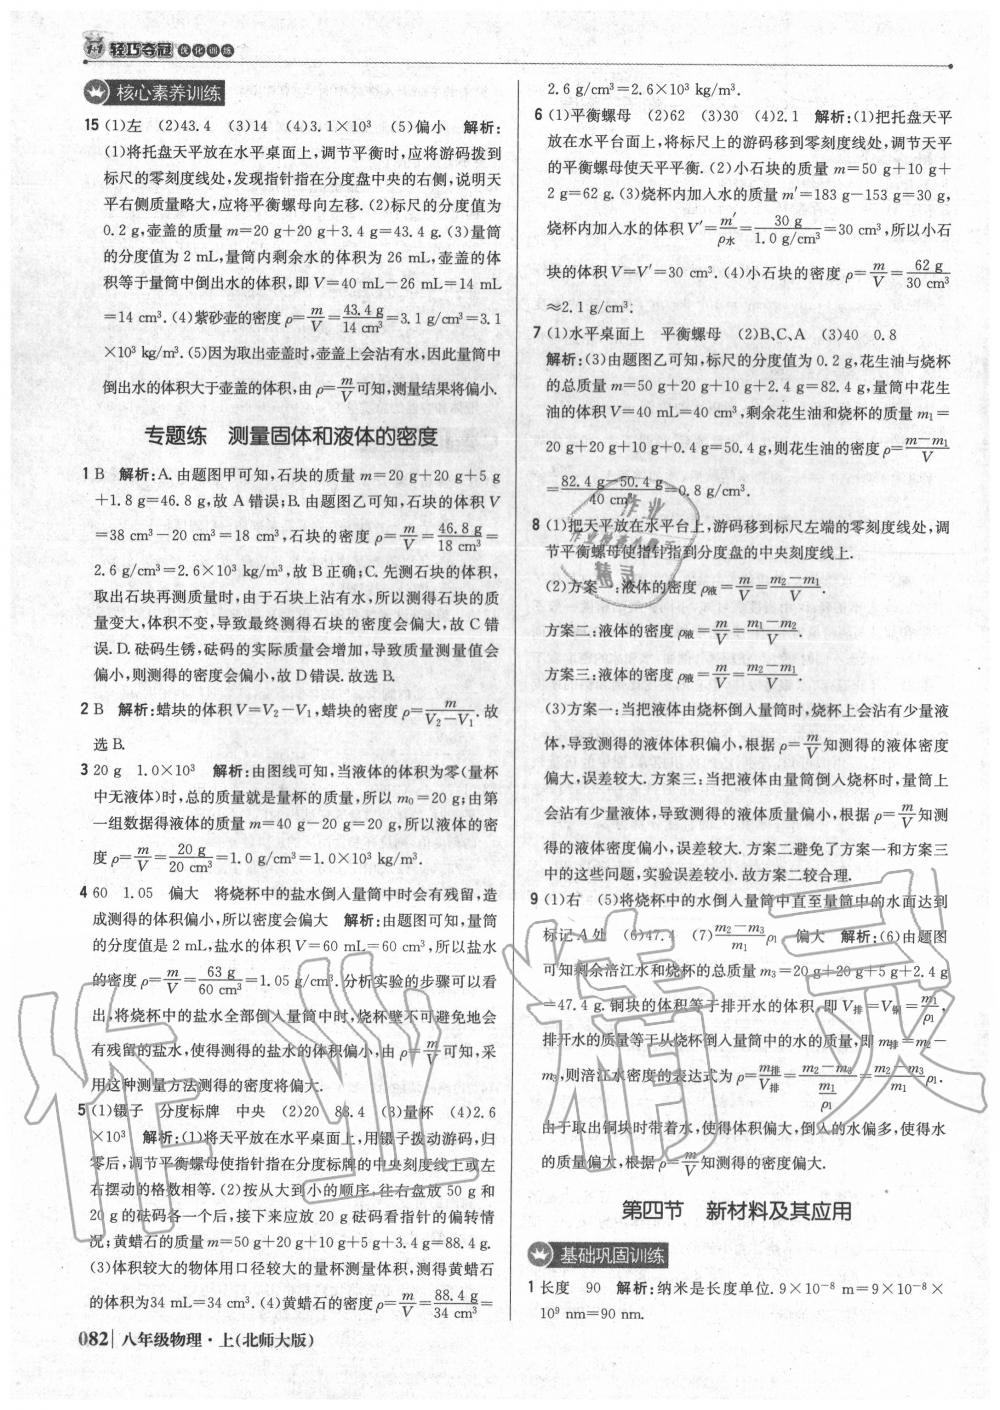 1+1 轻巧夺冠 优化训练
核心素养训练
15 (1)左 (2)43.4 (3)14 (4)3.1×10³ (5)偏小 解析:
(1)将托盘天平放在水平桌面上,调节平衡时,应将游码拨到
标尺的零刻度线处,发现指针指在分度盘中央的右侧,说明天
平右侧质量略大,应将平衡螺母向左移.(2)标尺的分度值为
0.2 g,壶盖的质量 m=20 g+20 g+3.4 g=43.4 g.(3)量筒
的分度值为 2 mL,量筒内剩余水的体积为 26 mL,壶盖的体
积等于量筒中倒出水的体积,即 V=40 mL-26 mL=14 mL
=14 cm³.(4)紫砂壶的密度 ρ=m/V=43.4 g/14 cm³=3.1 g/cm³=3.1
×10³ kg/m³.(5)因为取出壶盖时,壶盖上会沾有水,因此量筒中
倒出水的体积大于壶盖的体积,由 ρ=m/V可知,测量结果将偏小.
专题练 测量固体和液体的密度
1 B 解析:A.由题图甲可知,石块的质量 m=20 g+20 g+5 g
+1.8 g=46.8 g,故 A 错误;B.由题图乙可知,石块的体积 V
=38 cm³-20 cm³=18 cm³,石块的密度 ρ=m/V=46.8 g/18 cm³=
2.6 g/cm³=2.6×10³ kg/m³,故 B 正确;C.先测石块的体积,
取出石块再测质量时,由于石块上沾有水,所以测得石块的质
量变大,体积不变,导致最终测得石块的密度会偏大,故 C 错
误.D.砝码生锈,砝码的实际质量会增加,导致质量测量值会
偏小,则测得的密度会偏小,故 D 错误.故选 B.
2 B 解析:蜡块的体积 V=V₂-V₁,蜡块的密度 ρ=m/(V₂-V₁).故
选 B.
3 20 g 1.0×10³ 解析:由图线可知,当液体的体积为零(量杯
中无液体)时,总的质量就是量杯的质量,所以 m₀=20 g;由第
一组数据得液体的质量 m=40 g-20 g=20 g,所以液体的密
度 ρ=m/V=20 g/20 cm³=1.0 g/cm³=1.0×10³ kg/m³.
4 60 1.05 偏大 将烧杯中的盐水倒入量筒中时会有残留,造
成测得的体积偏小,所以密度会偏大 解析:由题图可知,量筒
的分度值是 2 mL,盐水的体积 V=60 mL=60 cm³,所以盐水
的密度 ρ=m/V=63 g/60 cm³=1.05 g/cm³.分析实验的步骤可以看
出,将烧杯中的盐水全部倒入量筒中时,烧杯壁不可避免地会
有残留的盐水,使得测得的盐水的体积偏小,由 ρ=m/V可知,采
用这种测量方法测得的密度将偏大.
5 (1)镊子 分度标牌 中央 (2)20 88.4 (3)量杯 (4)2.6
×10³ 解析:(1)将天平放在水平桌面上,用镊子拨动游码,归
零后,调节平衡螺母使指针指在分度标牌的中央刻度线上或左
右摆动的格数相等.(2)按从大到小的顺序,往右盘放 50 g 和
20 g 的砝码各一个后,接下来应放 20 g 砝码看指针的偏转情
况;黄蜡石的质量=50 g+20 g+10 g+5 g+3.4 g=88.4 g.
(3)体积较大的物体用口径较大的量杯测量体积,测得黄蜡石
的体积为34 mL=34 cm³.(4)黄蜡石的密度 ρ=m/V=88.4 g/34 cm³=
082 八年级物理·上(北师大版)
2.6 g/cm³=2.6×10³ kg/m³.
6 (1)平衡螺母 (2)62 (3)30 (4)2.1 解析:(1)把托盘天平
放在水平台面上,将标尺上的游码移到零刻度线处,调节天平
的平衡螺母使天平平衡.(2)小石块的质量 m=50 g+10 g+
2 g=62 g.(3)烧杯内加入水的质量 m′=183 g-153 g=30 g,
烧杯内加入水的体积 V′=m′/ρ水=30 g/1.0 g/cm³=30 cm³,所以小石
块的体积 V=V′=30 cm³.(4)小石块的密度 ρ=m/V=62 g/30 cm³
≈2.1 g/cm³.
7 (1)水平桌面上 平衡螺母 (2)B、C、A (3)40 0.8
解析:(3)由题图乙可知,标尺的分度值为 0.2 g,花生油与烧杯
的总质量 m=50 g+20 g+10 g+2.4 g=82.4 g,量筒中花生
油的体积 V=40 mL=40 cm³,剩余花生油和烧杯的质量 m₁=
20 g+20 g+10 g+0.4 g=50.4 g,则花生油的密度 ρ=(m-m₁)/V
=(82.4 g-50.4 g)/40 cm³=0.8 g/cm³.
8 (1)把天平放在水平台上,游码移到标尺左端的零刻度线处,调
节平衡螺母使指针指到分度盘的中央刻度线上.
(2)方案一:液体的密度 ρ液=m/V=(m₂-m₁)/V.
方案二:液体的密度 ρ液=m/V=(m₁-m₂)/V.
方案三:液体的密度 ρ液=m/V=(m₂-m₁)/V.
(3)方案一:当把液体由烧杯倒入量筒时,烧杯上会沾有少量液
体,导致测得的液体体积偏小,根据 ρ=m/V知测得的液体密度
偏大,误差较大.方案三:当把液体由量筒倒入烧杯时,量筒上
会沾有少量液体,导致测得的液体质量偏小,根据 ρ=m/V知测
得的液体密度偏小,误差较大.方案二避免了方案一和方案三
中的这些问题,实验误差较小.故方案二较合理.
9 (1)右 (5)将烧杯中的水倒入量筒中直至量筒中的水面达到
标记 A 处 (6)47.4 (7)(m₂-m₃)/m₁ρ₁ 偏大 解析:(6)由题图
可知剩余涪江水和烧杯的总质量 m₃=20 g+20 g+5 g+2.4 g
=47.4 g.铜块的体积等于排开水的体积,即 V排=V铜=m₁/ρ₁,
排开水的质量等于从烧杯倒入量筒中的水的质量,即 m排=m₂-
m₃,则涪江水密度的表达式为 ρ=m排/V排=(m₂-m₃)/(m₁/ρ₁)=(m₂-m₃)/m₁ρ₁.
由于取出铜块时带着水,使得体积偏大,倒入的水偏多,使得水
的质量偏大,根据 ρ=m/V知测得的密度偏大.
第四节 新材料及其应用
基础巩固训练
1 长度 90 解析:纳米是长度单位.9×10⁻⁸ m=9×10⁻⁸×
10⁹ nm=90 nm.
作业精灵